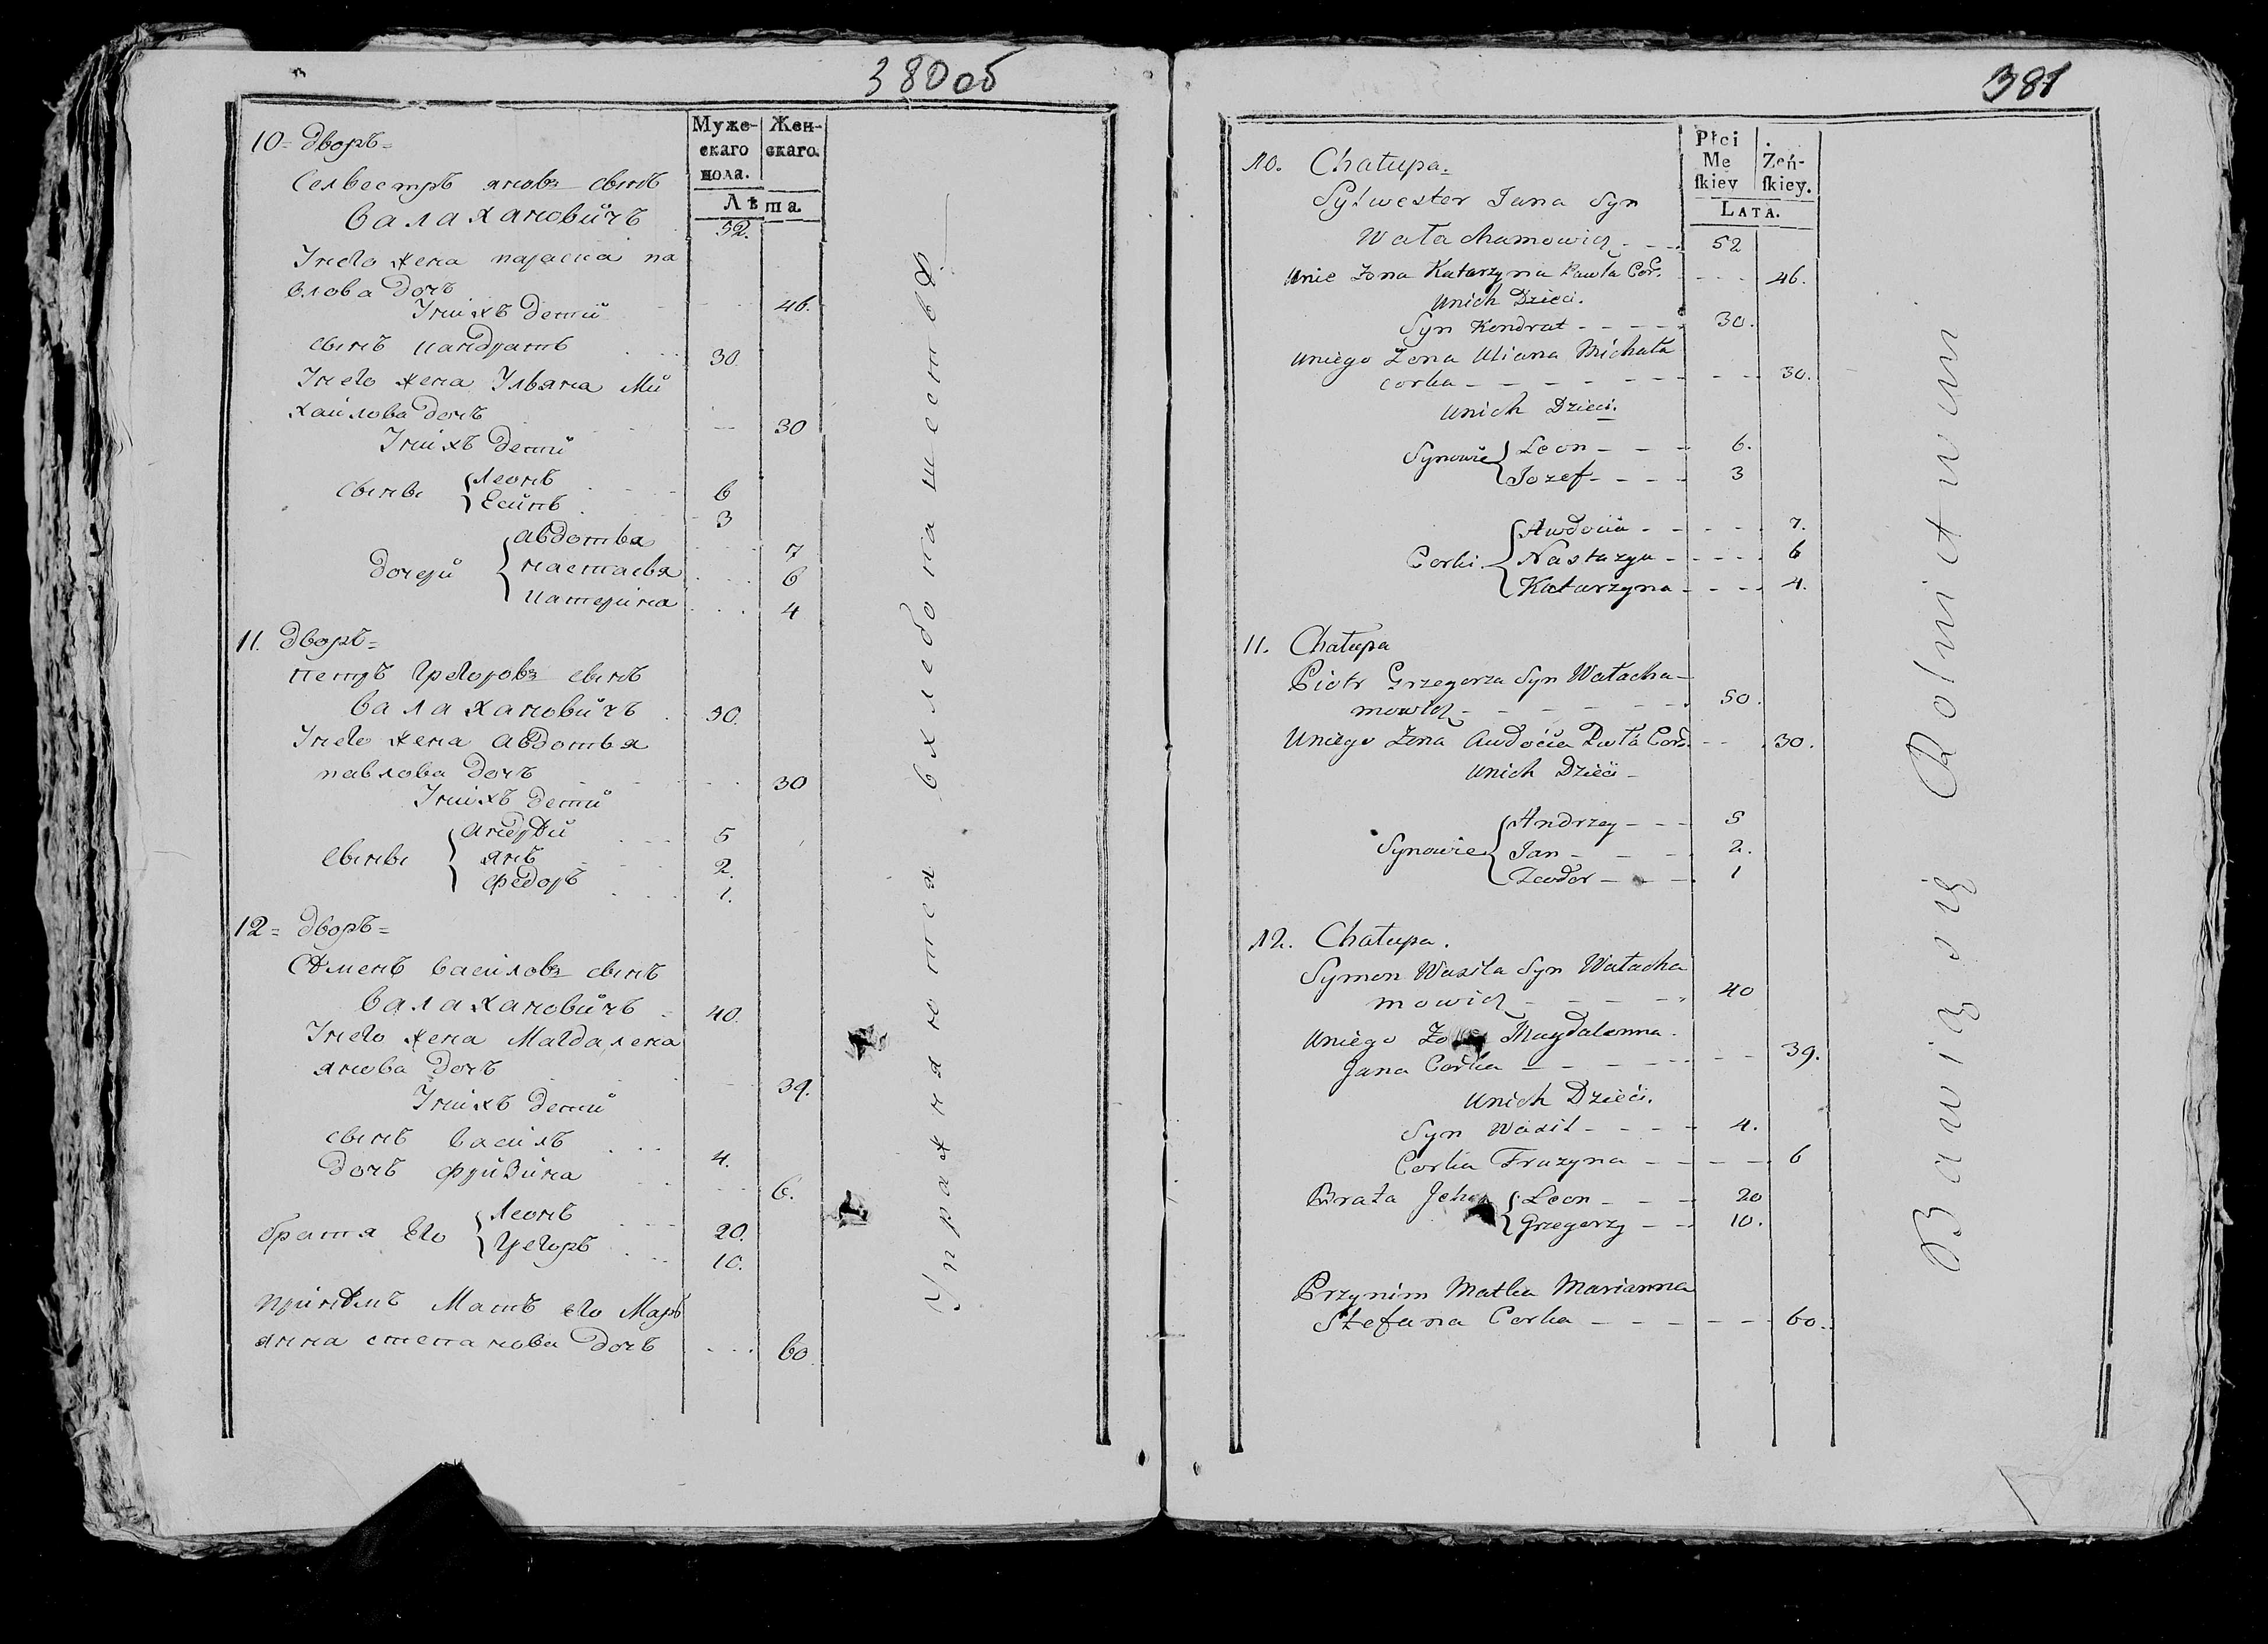 380 об
Муже-
скаго
пола.
Жен-
скаго.
Лѣта
10= дворъ=
Селвестръ яновъ сынъ
валахановичъ 52.
Унего жена параска па
влова дочъ 46.
Унихъ дети
сынъ кандратъ 30
Унего жена Ульяна Ми
хаилова дочъ 30
Унихъ дети
сыны { Леонъ 6
Есипъ 3
дочери { авдотья 7
настасья 6
катерина 4
11. дворъ=
петръ Грегоровъ сынъ
валахановичъ 50.
Унего жена авдотья
павлова дочъ 30
Унихъ дети
сыны { андрѣй 5
янъ 2.
федоръ 1.
12= дворъ=
Сѣменъ василовъ сынъ
валахановичъ 40.
Унего жена Магдалена
янова дочъ 39.
Унихъ дети
сынъ василь 4.
дочъ фрузина 6.
братя его { Леонъ 20.
Грегоръ 10.
принѣмъ Матъ его Маръ
янна степанова дочъ 60
Упражняются вхлебопашествѣ
381
Płci
Mę
ſkiey
Żeń-
ſkiey.
LATA.
10. Chałupa.
Sylwester Jana Syn
Wałachanowicz 52
Unie Zona Katarzyna Pawła Cor. 46.
Unich Dzieci.
Syn Kondrat 30.
Uniego Zona Uliana Michała
corka 30.
Unich Dzieci.
Synowie { Leon 6.
Jozef 3
Corki { Awdocia 7.
Nastazya 6
Katarzyna 4.
11. Chałupa
Piotr Grzegorza Syn Wałacha-
nowicz 50.
Uniego Zona Audocia Pawła Cor. 30.
Unich Dzieci
Synowie { Andrzey 5
Jan 2.
Teodor 1
12. Chałupa.
Symon Wasila Syn Wałacha
nowicz 40
Uniego Zo Magdalenna
Jana Corka 39.
Unich Dzieci.
Syn Wasil 4.
Corka Fruzyna 6
Brata Jeho { Leon 20
Grzegorzy 10.
Przynim Matka Marianna
Stefana Corka 60.
Bawią się Rolnictwem